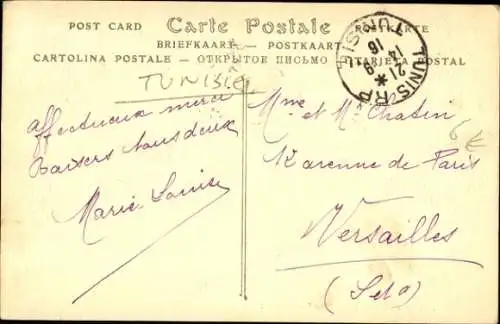 POST CARD Carte Postale POSTKARTE
BRIEFKAART POSTKAART
CARTOLINA POSTALE — ОТКРЫТОЕ ПИСЬМО TARJETA POSTAL
TUNIS R.P TUNISIE
14 16
21 9
TUNISIE
affectueux merci
Baisers tous deux
Marie Louise
Mme et M Chatin
avenue de Paris
Versailles
(S et O)
6 €